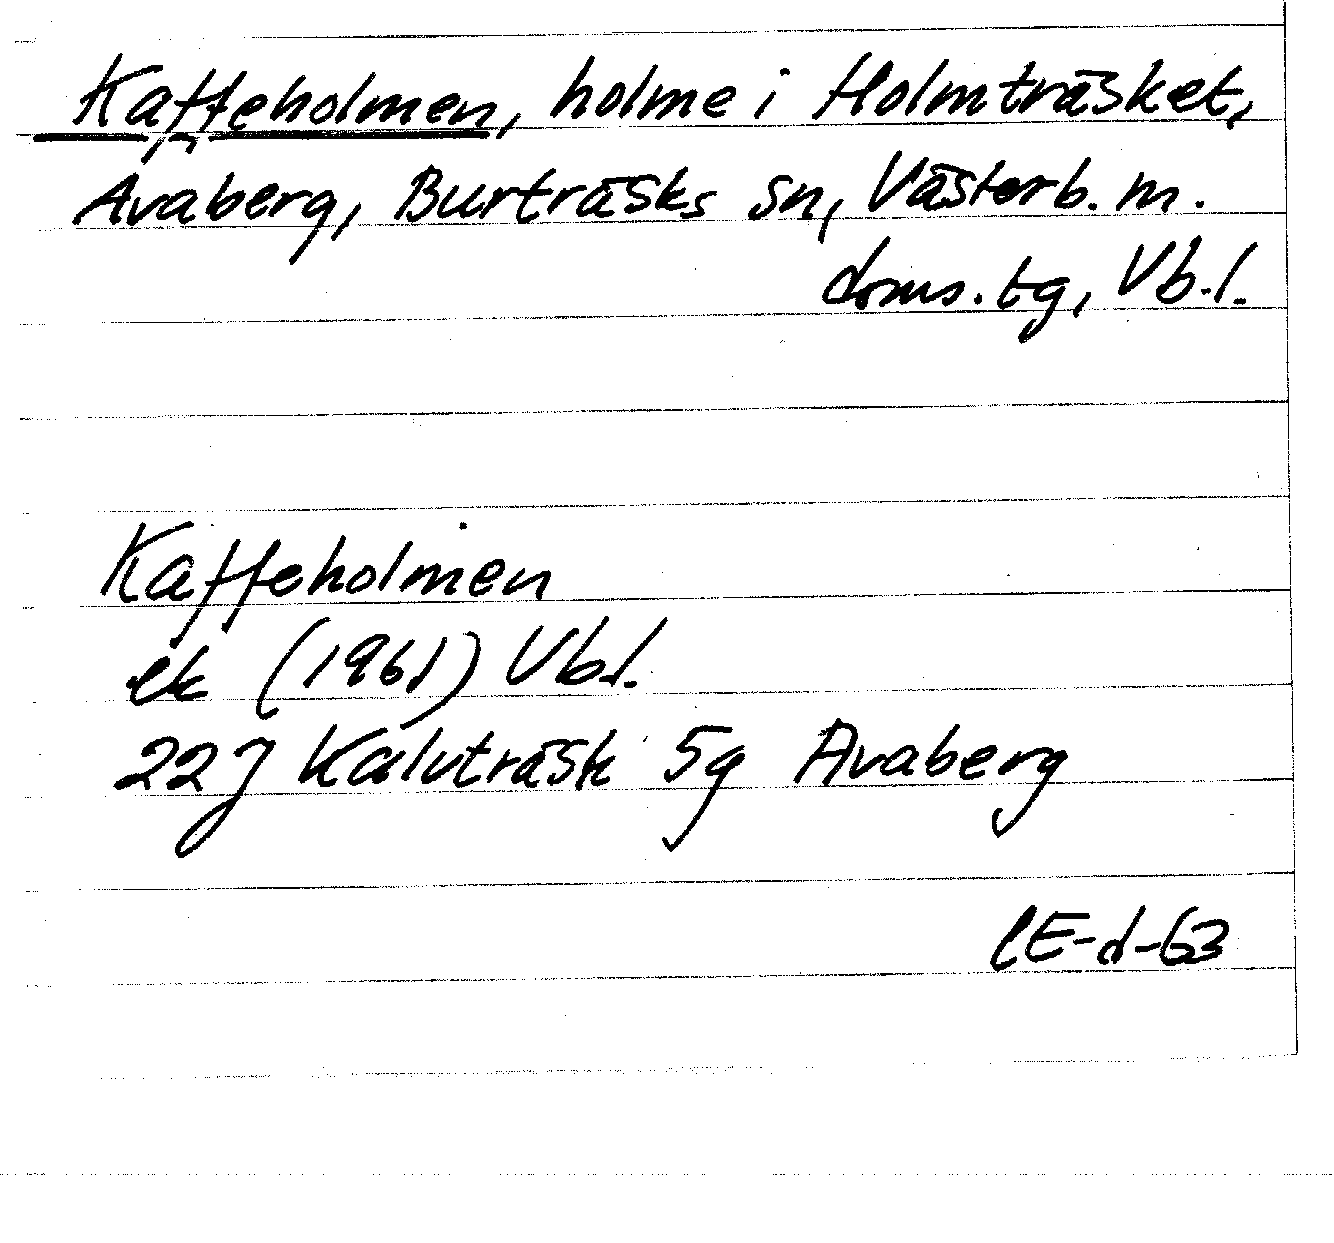 Kaffeholmen, holme i Holmträsket,
Avaberg, Burträsks sn, Västerb. m.
doms. tg, Vb. l.
Kaffeholmen
ek (1961) Vbl.
22J Kalvträsk 5g Avaberg
CE-d-63